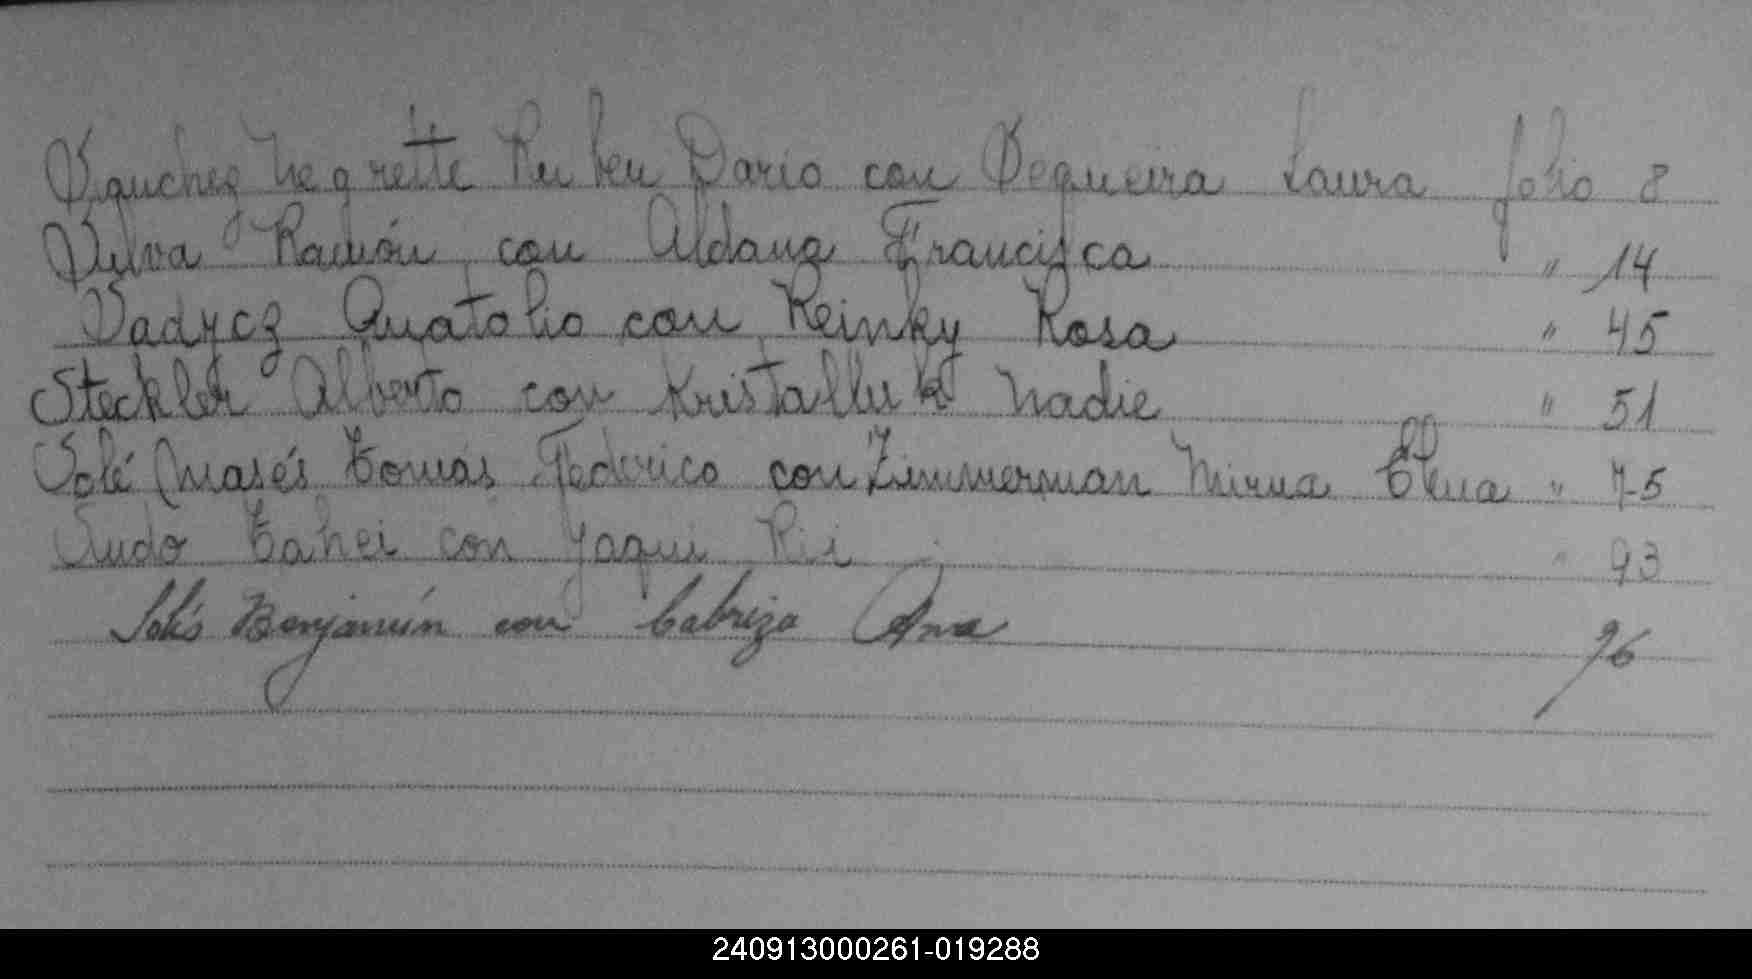 Sanchez Negrette Ruben Dario con Sequeira Laura folio 8
Silva Ramón con Aldana Francisca " 14
Sadycz Anatolio con Reinky Rosa " 45
Steckler Alberto con Kristalluk Nadie " 51
Solé Masés Tomás Federico con Zimmerman Mirna Elena " 75
Sudo Tahei con Yaqui Rii " 93
Solís Benjamín con Cabriza Ana 96
240913000261-019288